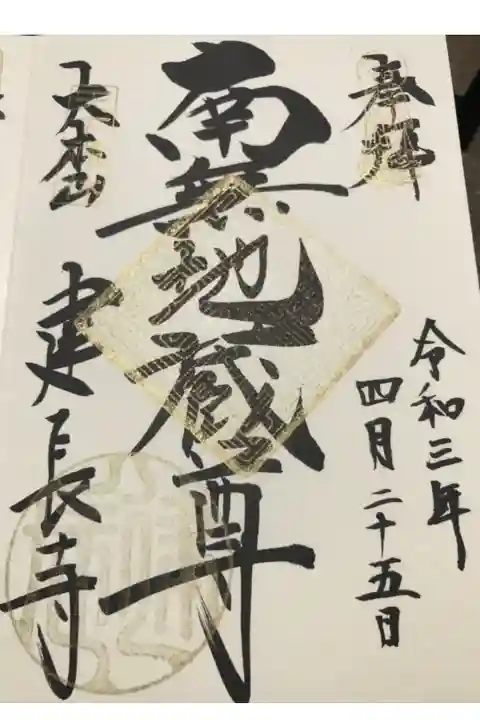 奉拝
令和三年
四月二十五日
南無地蔵尊
天下禅林
建長寺